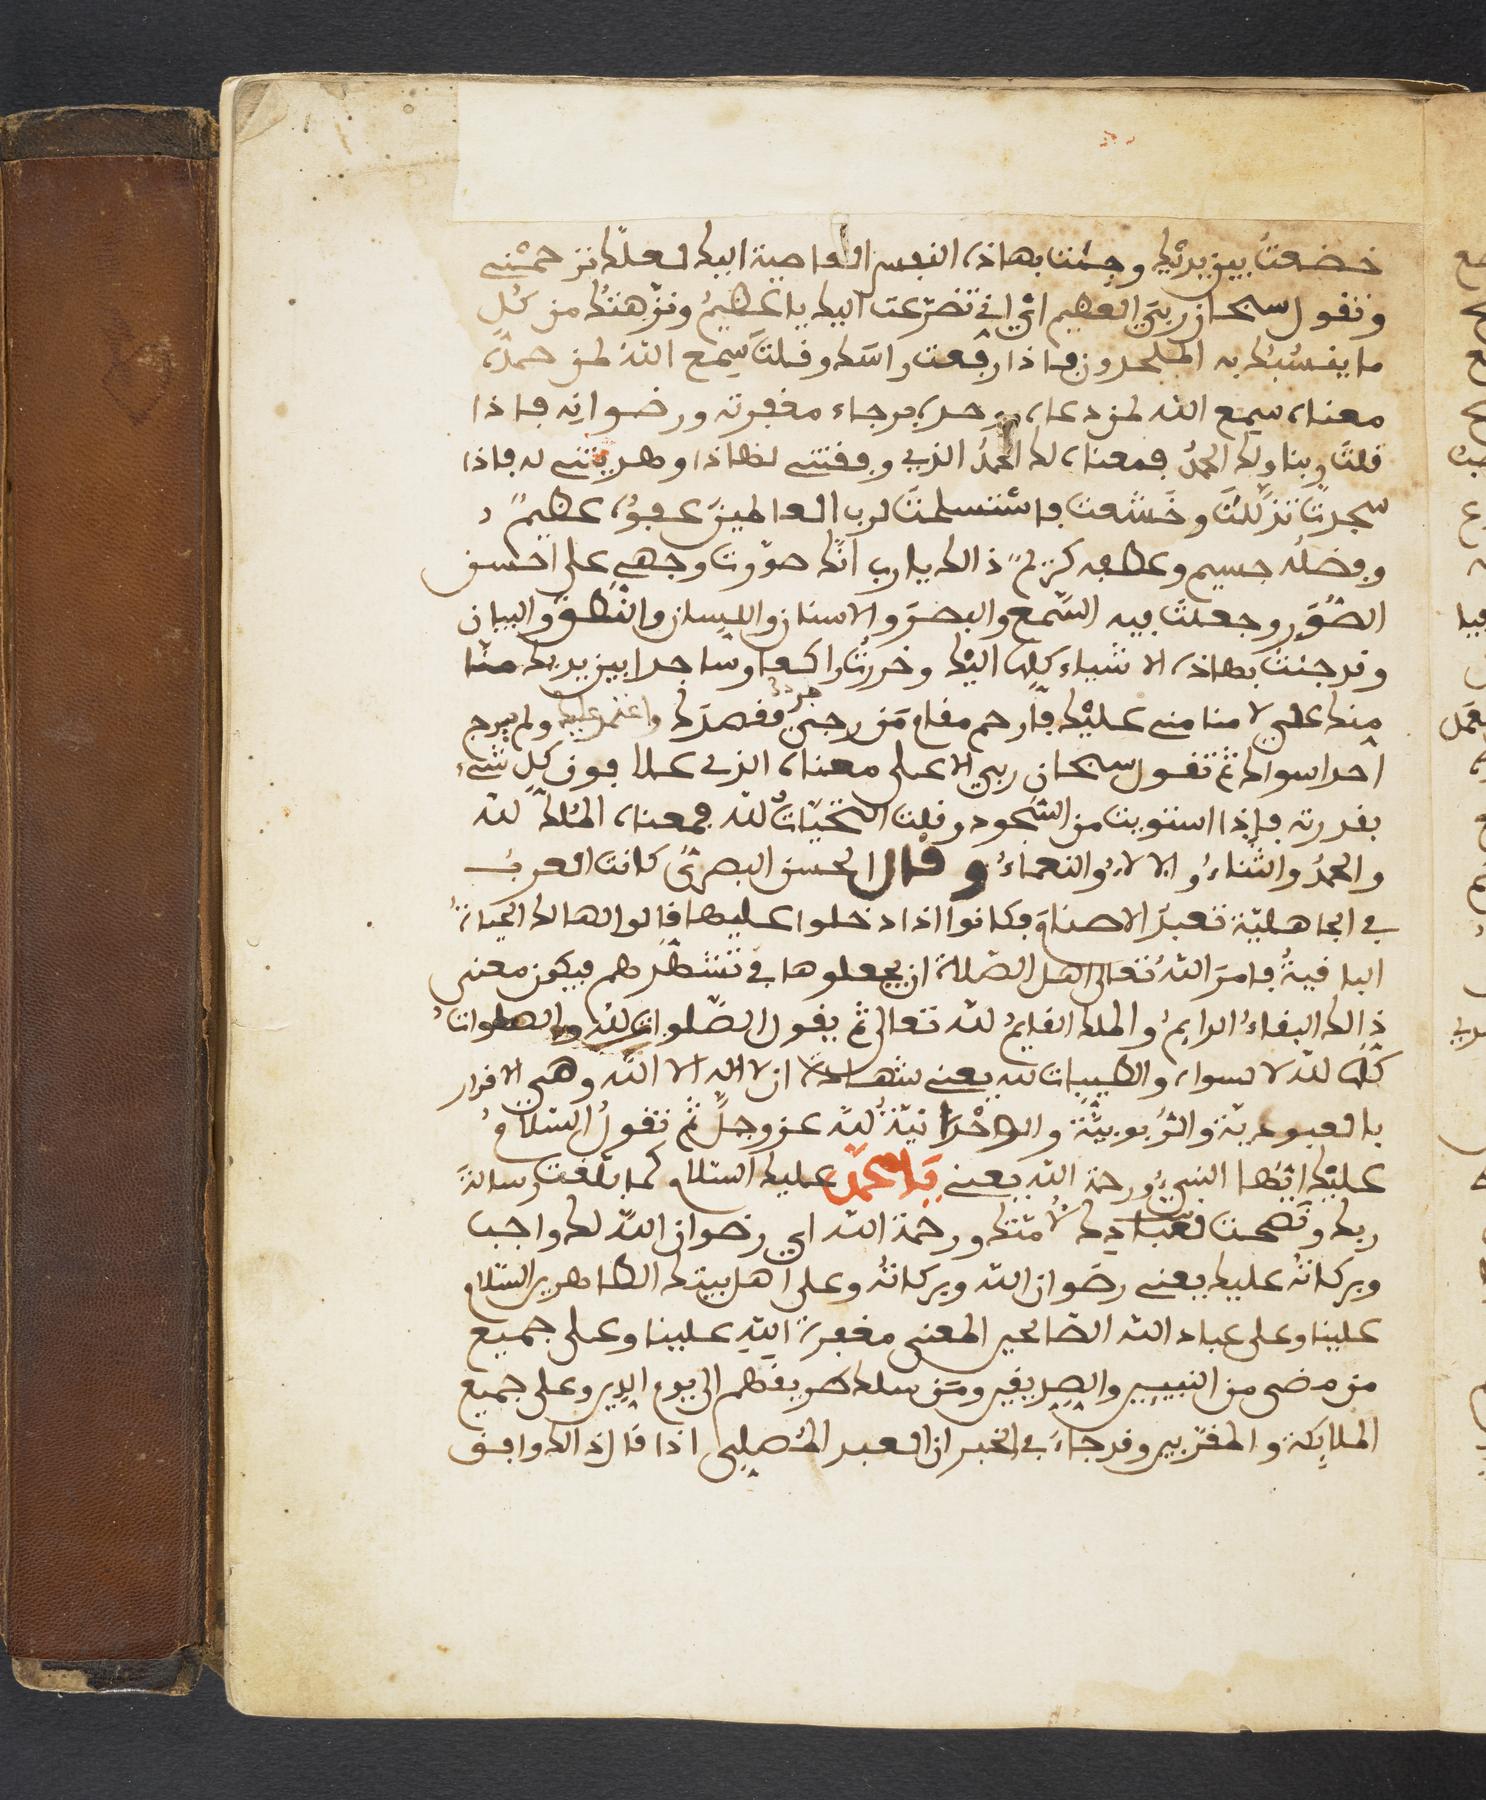 خضعتُ بين يديْك وجئت بهاذه النفس العاصية اليك لعلّك ترحمْني
وتقول سبحان ربيَ العظيم اي اني تضرّعت اليك يا عظيمُ ونزّهتُك من كل
ما ينسُبُك به الملحدون فاذا رفعت راسَك وقلتَ سمع اللهُ لمن حمدَه
معناه سمع الله لمن دعاه ووحده برجاء مغفرته ورضوانه فاذا
قلتَ ربنا ولك الحمدُ فمعناه لك الحمدُ الذي وفقتني لهاذا وهديتني له فاذا
سجدتَ تذلّلتَ وخَشَعت فاستسلمتَ لرب العالمينَ عفوُه عظيمٌ
وفضلُه جسيم وعطفه كريمٌ ذالك يا رب انّك صوّرت وجهي على احسن
الصُّوَر وجعلتَ فيه السَّمع والبصرَ والاسنان واللسان والنُّطقَ والبيان
وقد جئتُ بهاذه الاشياء كلها اليْك وخررتُ راكعا وساجدا بين يديك منّا
منك علي لا منا مني عليْك فارحم مقام مَن رجى فقصدَك واعتمد عليك ولم يرج
احدا سواك ثم تقول سبحان ربي الاعلى معناه الذي علا فوق كلّ شيء
بقدرته فإذا استويت من السّجود وقلت التّحيّاتُ لله فمعناه الملك لله
والحمدُ والثَّناءُ والالاءُ والنعماءُ وقال الحسن البصريُّ كانت العرب
في الجاهليّة تعبدُ الاصنامَ فكانوا اذا دخلوا عليها قالوا لها لك الحياةُ
الباقيةُ فامرَ اللهُ تعالى اهل الصّلاة ان يجعلوها في تشهّدهم فيكون معنى
ذالك البقاءُ الدايمُ والملك القايمُ لله تعالى ثم يقول الصّلوات لله والصلواتُ
كلها لله لا لسواه والطيبات لله يعني شهادة ان لا اله الا الله وهي الاقرار
بالعبوديّة والرّبوبيّة والواحْدانيّة لله عز وجلّ ثم تقولُ السّلامُ
عليْك ايّها النبيُّ ورحمة الله يعني يَا محمّد عليك السلام كما بلّغت رسالةَ
ربك ونصحت لعباده لامّتك ورحمة الله اي رضوان اللّه لك واجب
وبركاتُه عليك يعني رضوان الله وبركاتُه وعلى اهل بيتك الطاهرين السّلام
علينا وعلى عباد الله الصّالحين المعنى مغفرة اللهِ علينا وعلى جميع
من مضى من النبيين والصديقين ومَن سلك طريقهم الى يوم الدين وعلى جميع
الملايكة والمقرّبين وقد جاءَ في الخبر ان العبد المُصلِي اذا قال ذالك وافق